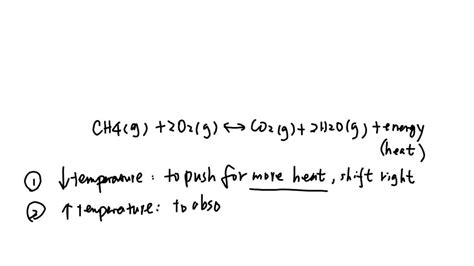 CH4(g) + 2O2(g) ↔ CO2(g) + 2H2O(g) + energy
(heat)
① ↓ temperature: to push for more heat, shift right
② ↑ temperature: to abso